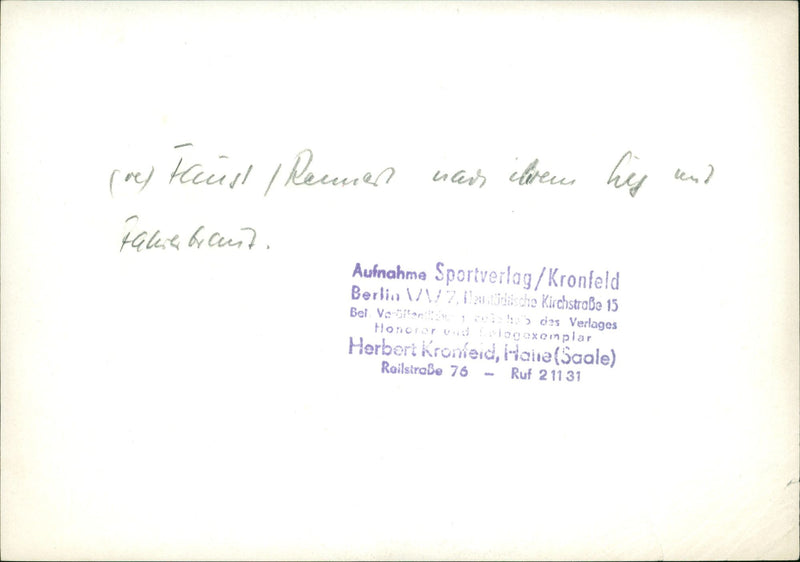 Faust / Rennert nach ihrem Sieg mit
Aufnahme Sportverlag/Kronfeld
Berlin W 7, Neustädtische Kirchstraße 15
Bei Veröffentlichung außerhalb des Verlages
Honorar und Belegexemplar
Herbert Kronfeld, Halle (Saale)
Reilstraße 76 – Ruf 2 11 31